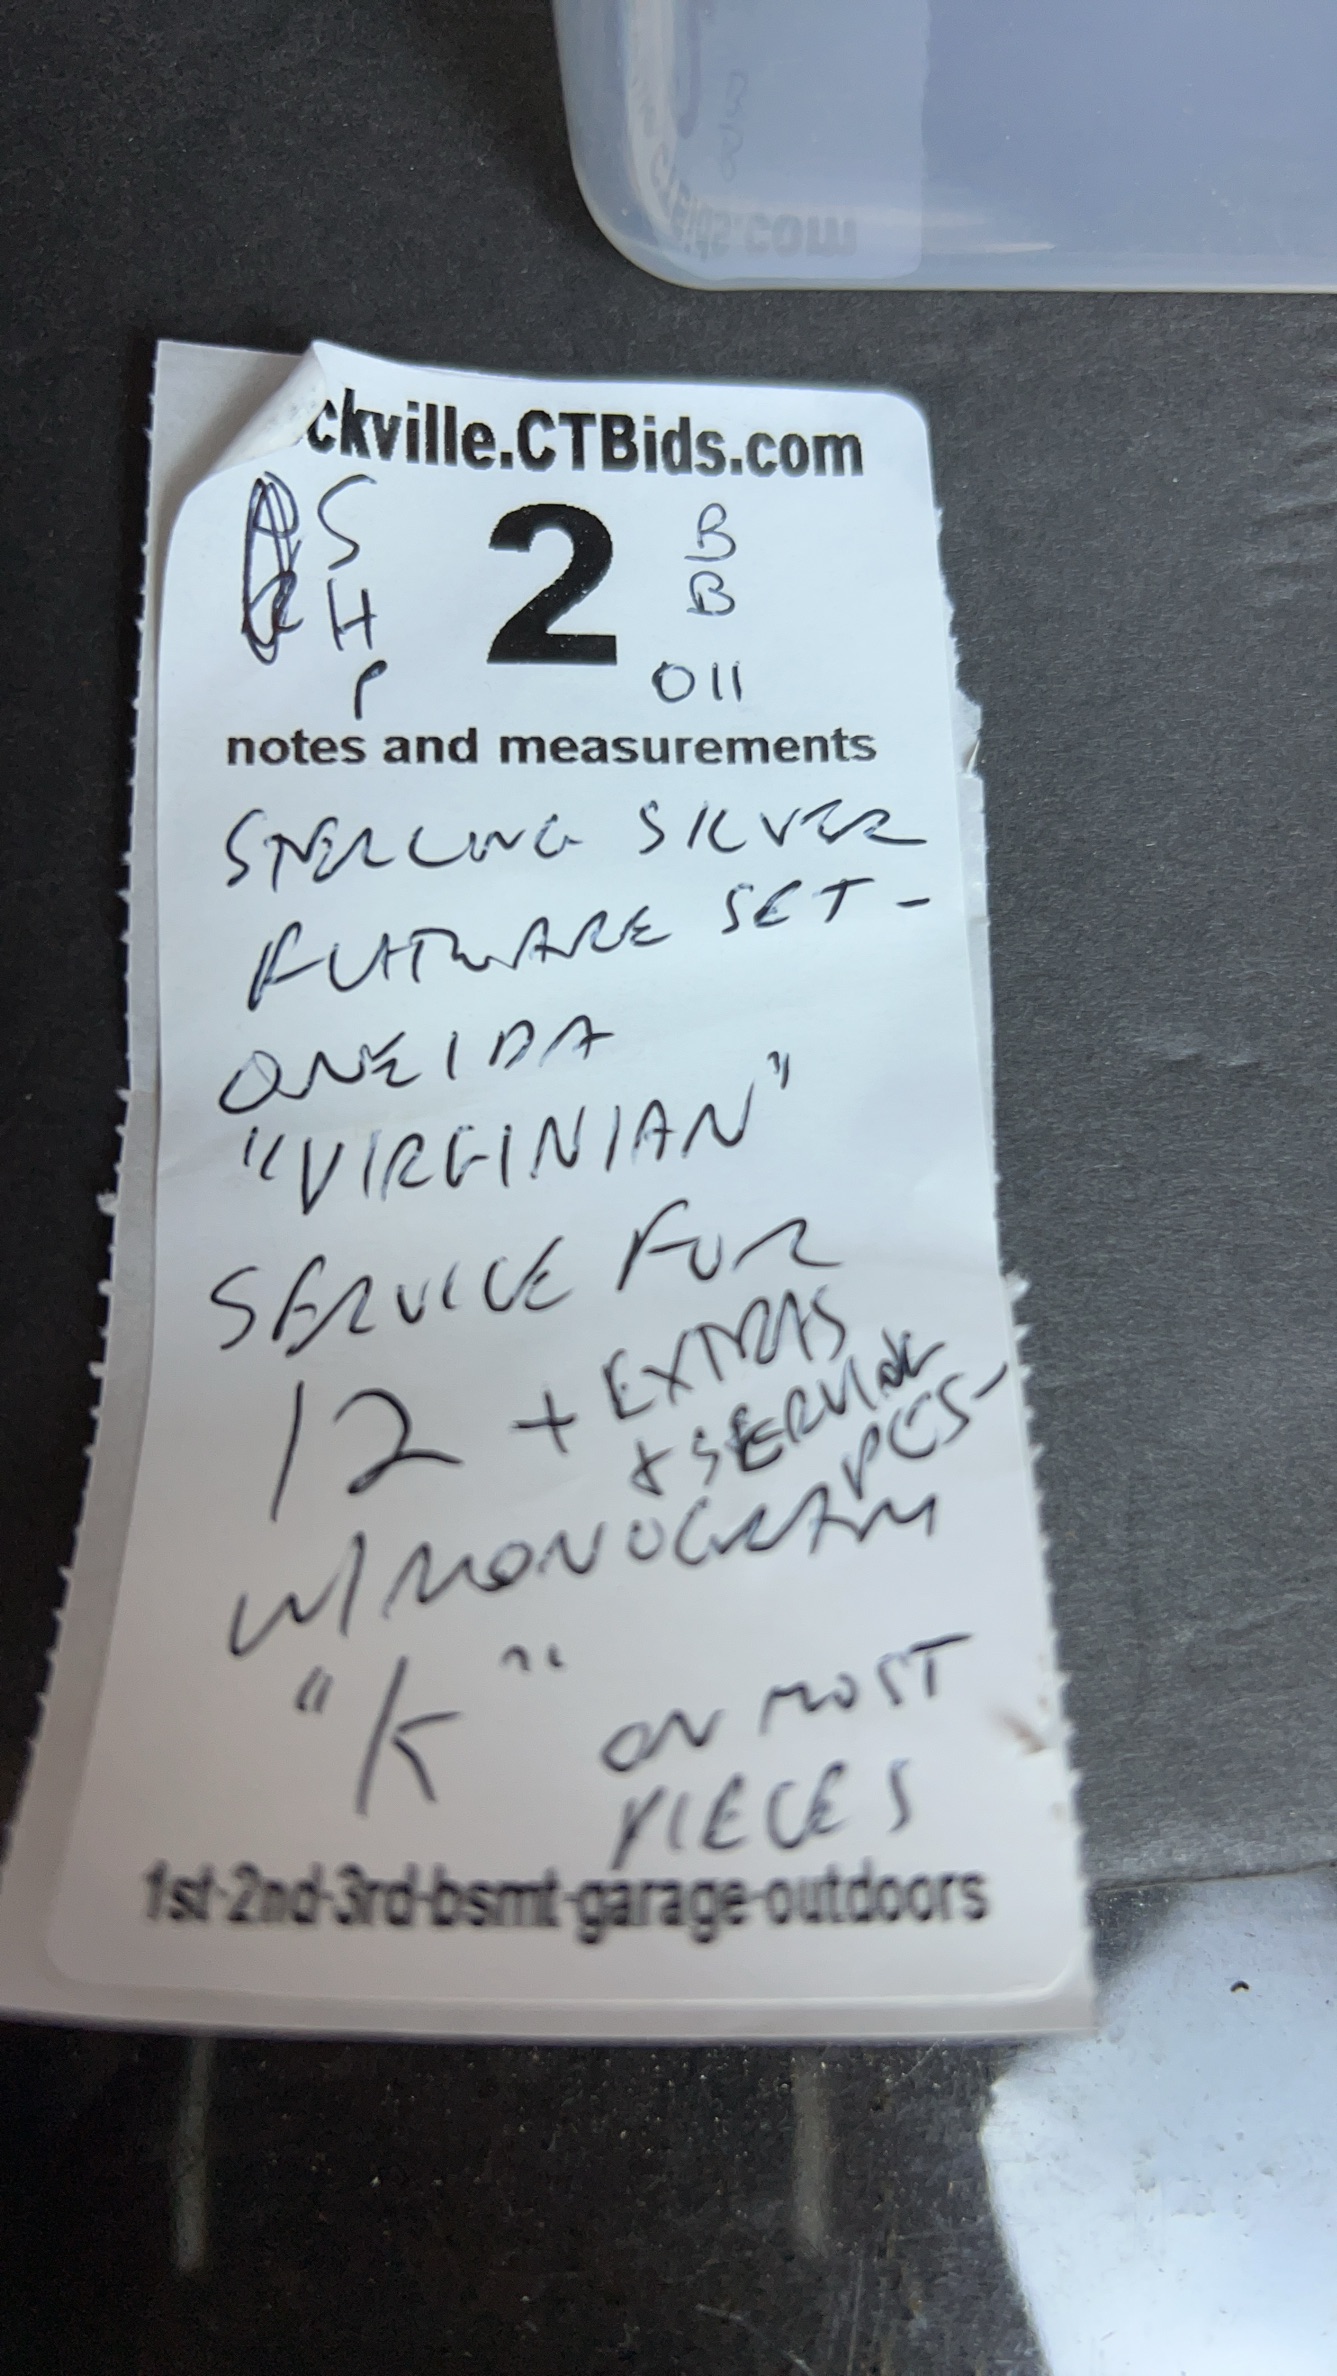 ckville.CTBids.com
S 2 B
H B
P 011
notes and measurements
STERLING SILVER
FLATWARE SET -
ONEIDA
"VIRGINIAN"
SERVICE FOR
12 + EXTRAS
+ SERVING
PCS-
W/MONOGRAM
"K" ON MOST
PIECES
1st-2nd-3rd-bsmt-garage-outdoors
CTBids.com